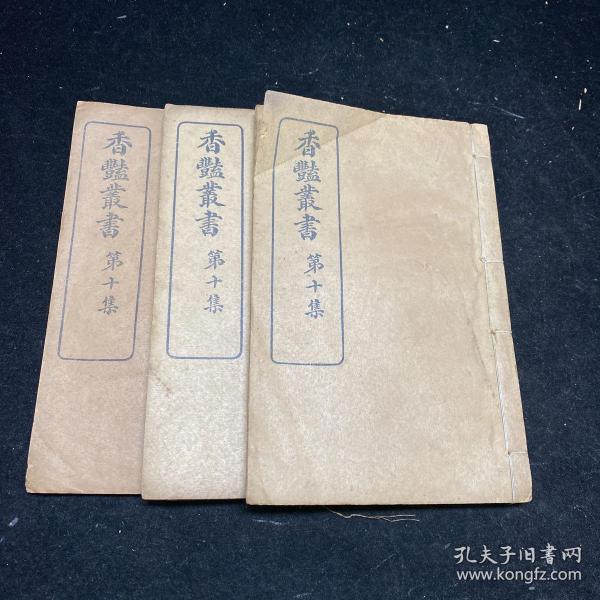 香豔叢書 第十集
香豔叢書 第十集
香豔叢書 第十集
孔夫子旧书网
www.kongfz.com